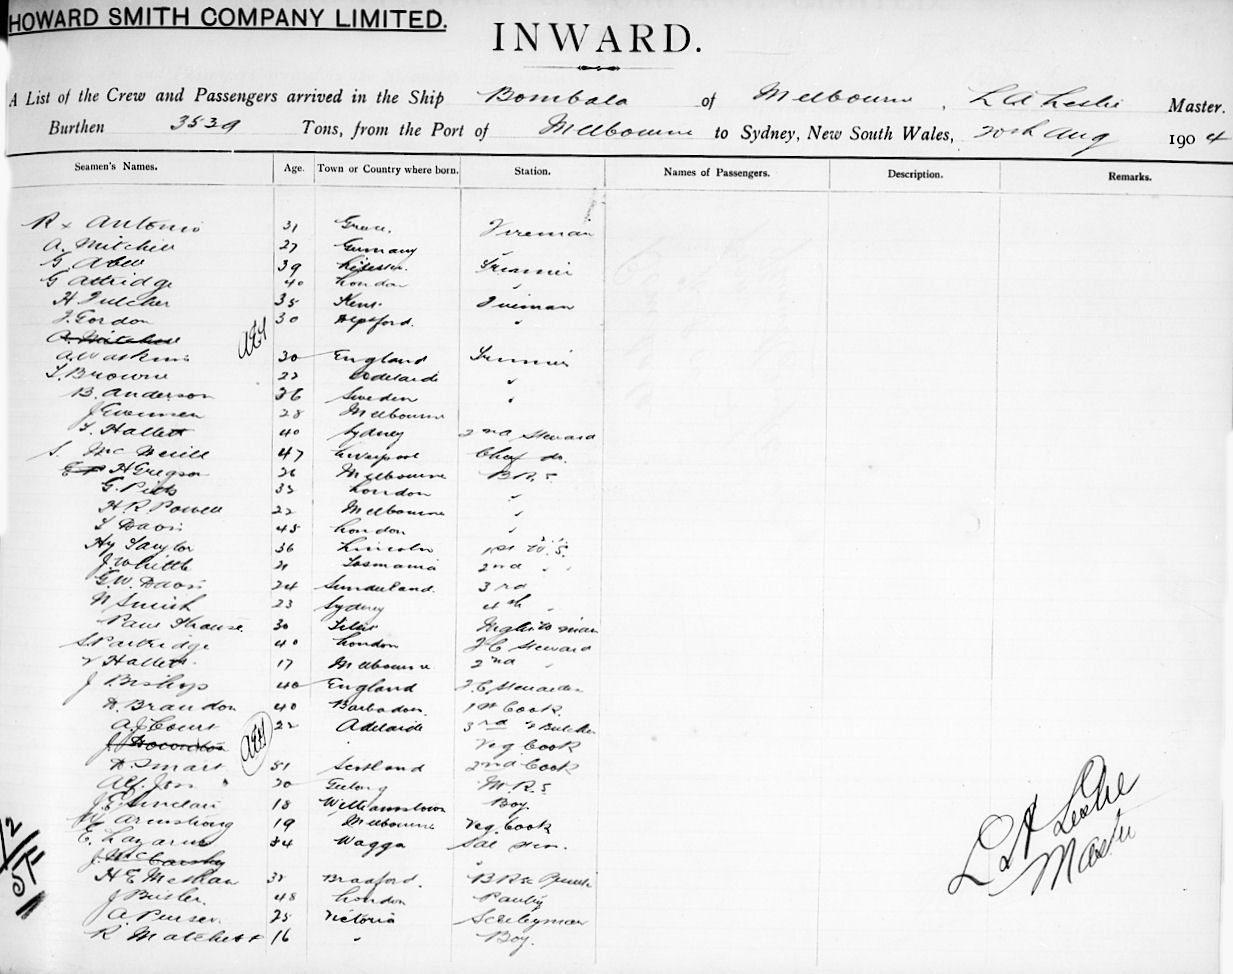 HOWARD SMITH COMPANY LIMITED.
INWARD.
A List of the Crew and Passengers arrived in the Ship Bombala of Melbourne, L A Leslie Master.
Burthen 3539 Tons, from the Port of Melbourne to Sydney, New South Wales, 20th Aug 1904
Seamen's Names. Age. Town or Country where born. Station. Names of Passengers. Description. Remarks.
R x Antonio 31 Greece Fireman
A. Mitchell 27 Germany
G Abell 39 Leicester Trimmer
G Attridge 40 London "
H Fulcher 35 Kent Fireman
J. Gordon 30 Deptford. "
A. Mitchell
A Watkins 30 England Trimmer
T. Browne 22 Adelaide "
B. Anderson 26 Sweden "
J 28 Melbourne
T. Hallett 40 Sydney 2nd Steward
S. Mc Neill 47 Liverpool Chef do.
H Gregson 26 Melbourne B.R.S.
G. 32 London "
H R Powell 22 Melbourne "
T Davis 45 London "
Hy Taylor 36 Lincoln 1st W.S.
J Whittle 21 Tasmania 2nd " "
G.W. Davis 24 Sunderland. 3rd
N Smith 23 Sydney 4th "
Paul Krause 30 Night W man
S. Partridge 40 London F C Steward
Hallett 17 Melbourne 2nd "
J Bishop 40 England F.C. Stewardess
D. Brandon 40 Barbados. 1st Cook.
A.J Court 22 Adelaide 3rd & Butcher
Veg Cook
D. Smart 51 Scotland 2nd Cook
Alf. Jon 20 Geelong M.R.S
J.E. Sinclair 18 Williamstown Boy.
W Armstrong 19 Melbourne Veg. Cook
E. Lazarus 34 Wagga Sal Stew.
J. McCarthy "
H E Methan 32 Bradford. B R &
J Butler 48 London Pantry
A. Purser. 25 Victoria Sculleyman
R Matchett 16 " Boy.
L A Leslie
Master